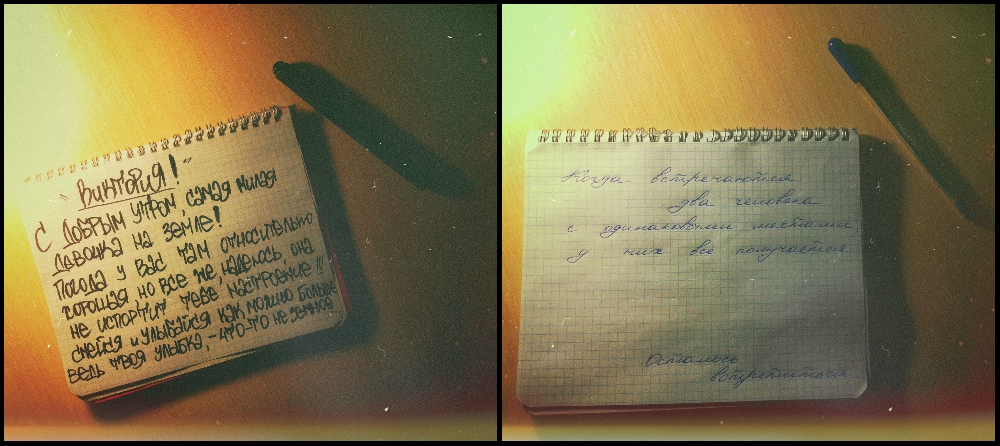 "Виктория!"
С добрым утром, самая милая
девочка на земле!
Погода у вас там относительно
хорошая, но все же, надеюсь, она
не испортит тебе настроение!!!
Смейся и улыбайся как можно больше
ведь твоя улыбка, - что-то неземное
Когда встречаются
два человека
с одинаковыми мечтами,
у них всё получается
Осталось
встретиться